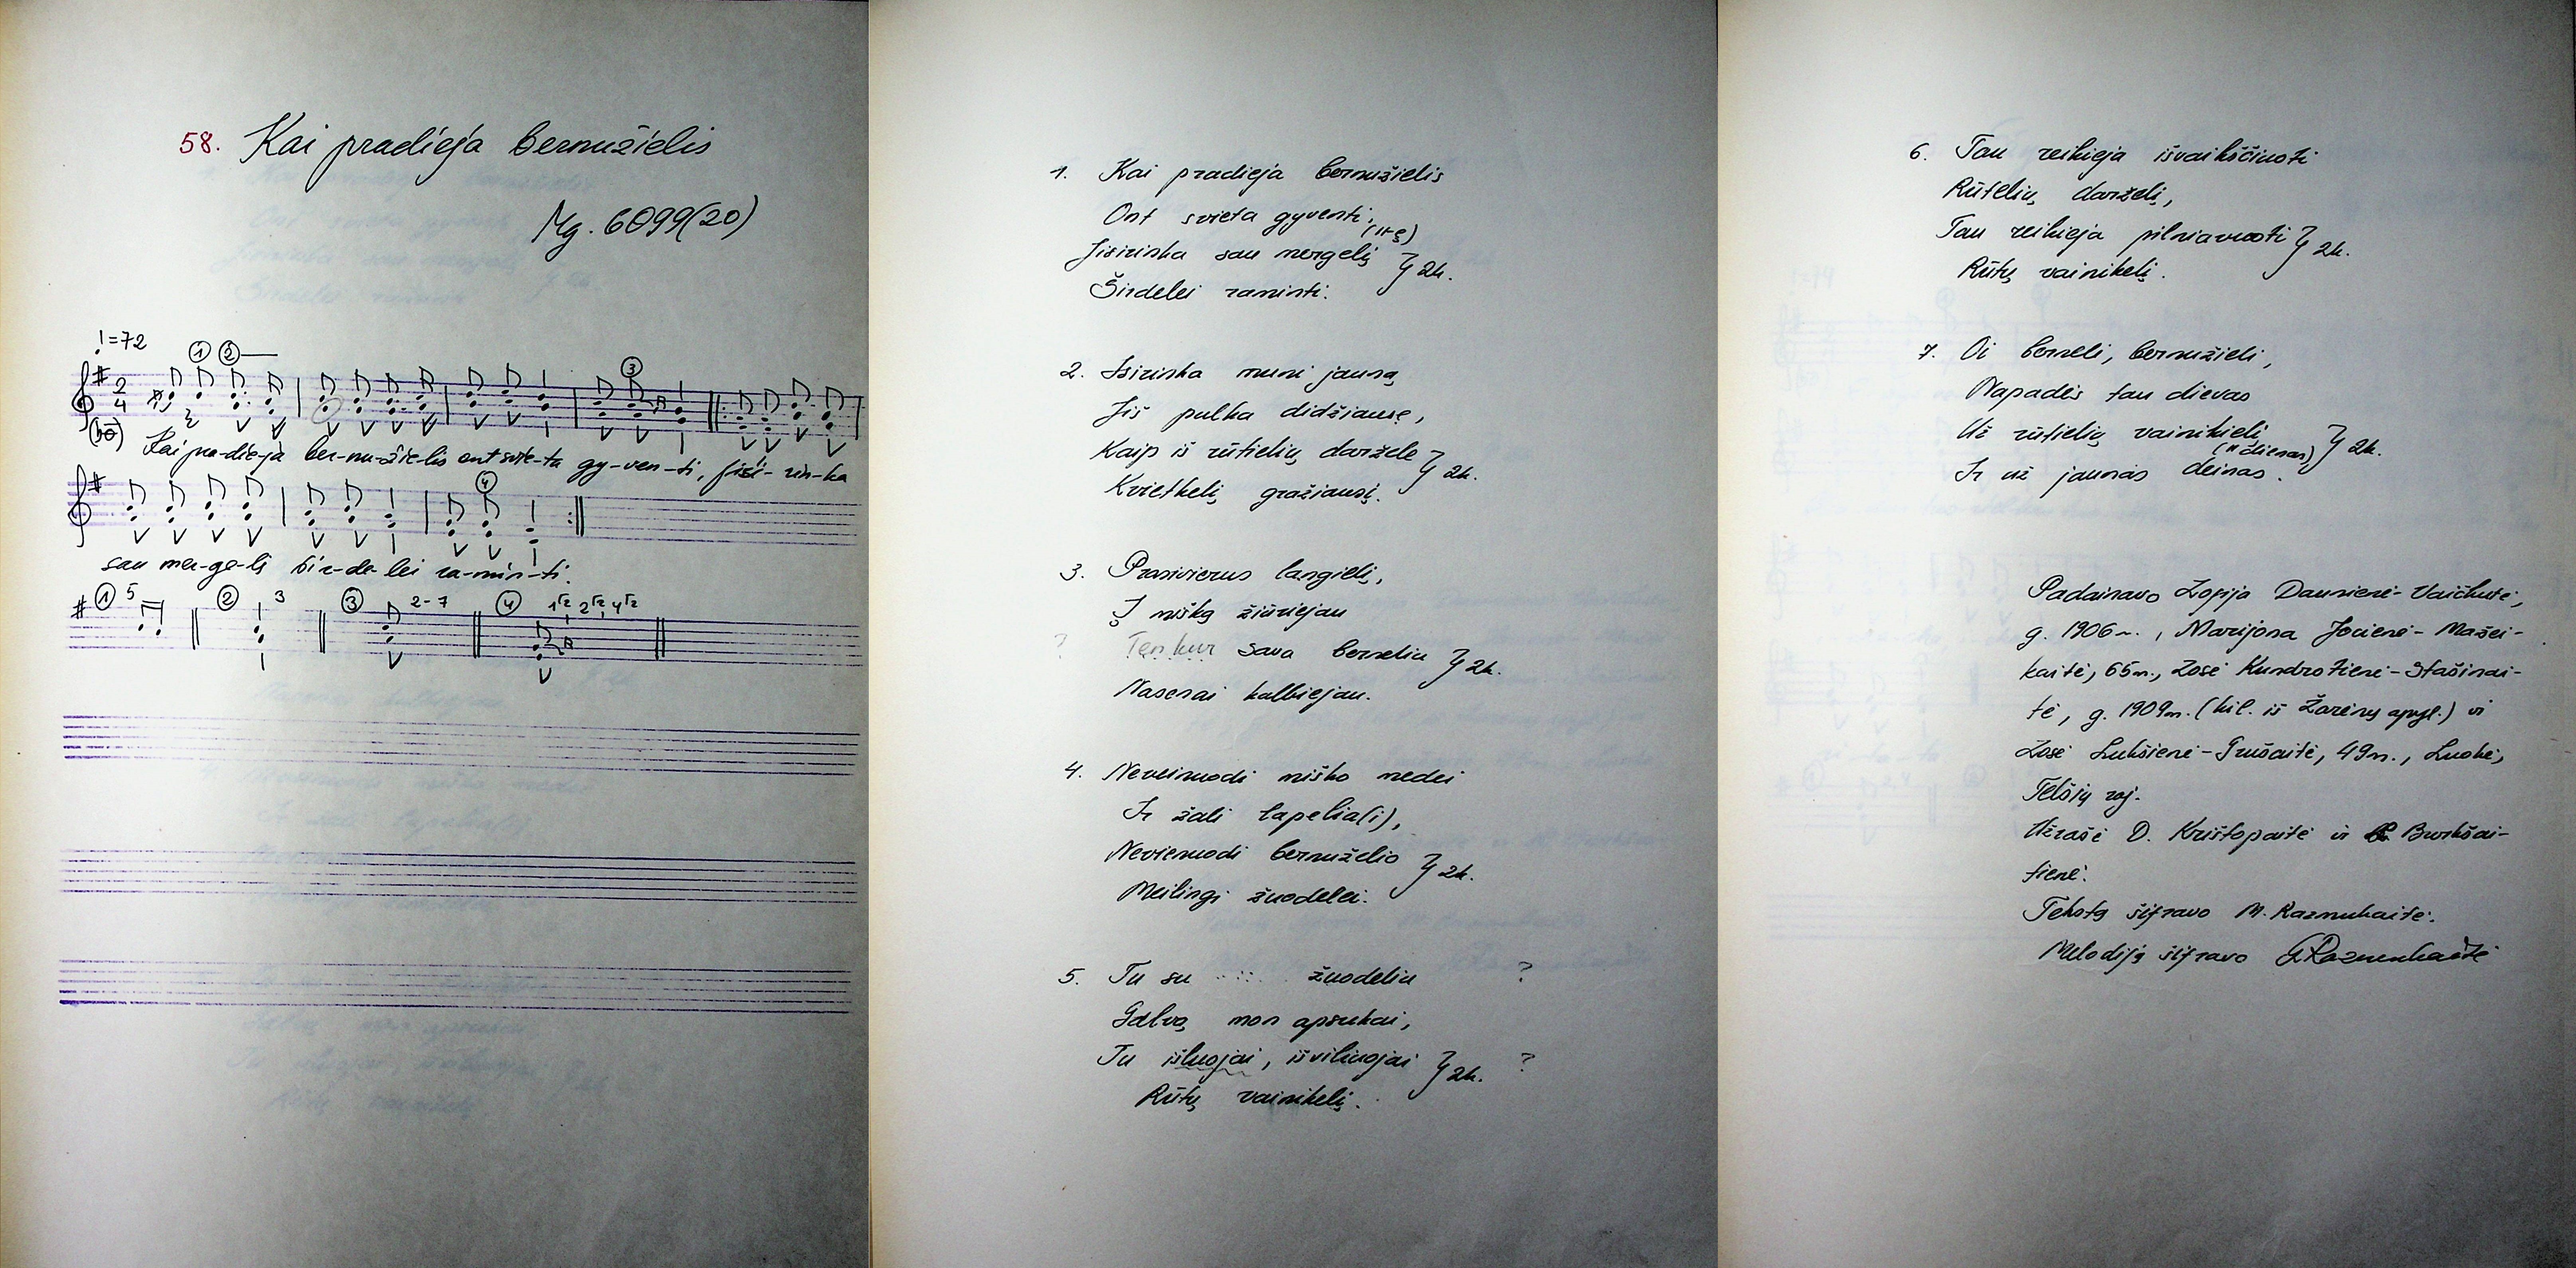 58. Kai pradieja bernužielis
Mg. 6099(20)
♩=72
① ②
③
2/4
Kai pra-die-ja ber-nu-žie-lis ont svie-ta gy-ven-ti, jisi-rin-ka
④
sau mer-ge-lį šir-de-lei ra-min-ti.
① 5 ② 3 ③ 2-7 ④
1. Kai pradieja bernužielis
Ont svieta gyventi,
Jisirinka sau mergelį } 2k.
Širdelei raminti.
2. Isirinka muni jauną
Jiš pulka didžiausę,
Kaip iš rūtielių daržele } 2k.
Kvietkelį gražiausį.
3. Prasivierus langielį,
Į mišką žiūriejau
? Ten kur sava berneliu } 2k.
Nasenai kalbiejau.
4. Neveinuodi miško medei
Ir žali lapelia(i),
Nevienuodi bernuželio } 2k.
Meilingi žuodelei.
5. Tu su ..... žuodeliu ?
Galvą mon apsukai,
Tu išluojai, išviliuojai } 2k. ?
Rūtų vainikelį.
6. Tau reikieja išvaikščiuoti
Rūtelių darželį,
Tau reikieja pilniavuoti } 2k.
Rūtų vainikelį.
7. Oi berneli, bernužieli,
Napadės tau dievas
Už rūtielių vainikielį } 2k.
(" dienas)
Ir už jaunas deinas.
Padainavo Zofija Daunienė-Vaičkutė,
g. 1906 m., Marijona Jocienė-Mažei-
kaitė, 65 m., Zosė Kundrotienė-Stašinai-
tė, g. 1909 m. (kil. iš Žarėnų apyl.) ir
Zosė Lukšienė-Grušaitė, 49 m., Luokė,
Telšių raj.
Užrašė D. Krištopaitė ir Burkšai-
tienė.
Tekstą šifravo M. Razmukaitė.
Melodiją šifravo Razmukaitė